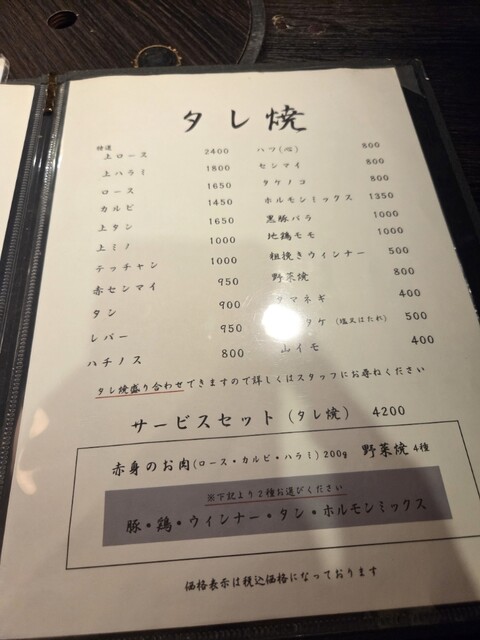 タレ焼
特選
上ロース 2400
上ハラミ 1800
ロース 1650
カルビ 1450
上タン 1650
上ミノ 1000
テッチャン 1000
赤センマイ 950
タン 900
レバー 950
ハチノス 800
ハツ(心) 800
センマイ 800
タケノコ 800
ホルモンミックス 1350
黒豚バラ 1000
地鶏モモ 1000
粗挽きウィンナー 500
野菜焼 800
タマネギ 400
タケ (塩又はたれ) 500
山イモ 400
タレ焼盛り合わせできますので詳しくはスタッフにお尋ねください
サービスセット (タレ焼) 4200
赤身のお肉(ロース・カルビ・ハラミ) 200g 野菜焼 4種
※下記より2種お選びください
豚・鶏・ウィンナー・タン・ホルモンミックス
価格表示は税込価格になっております